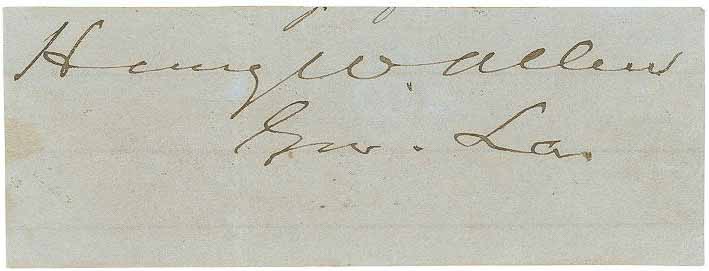 Henry W. Allen
Gov. La.